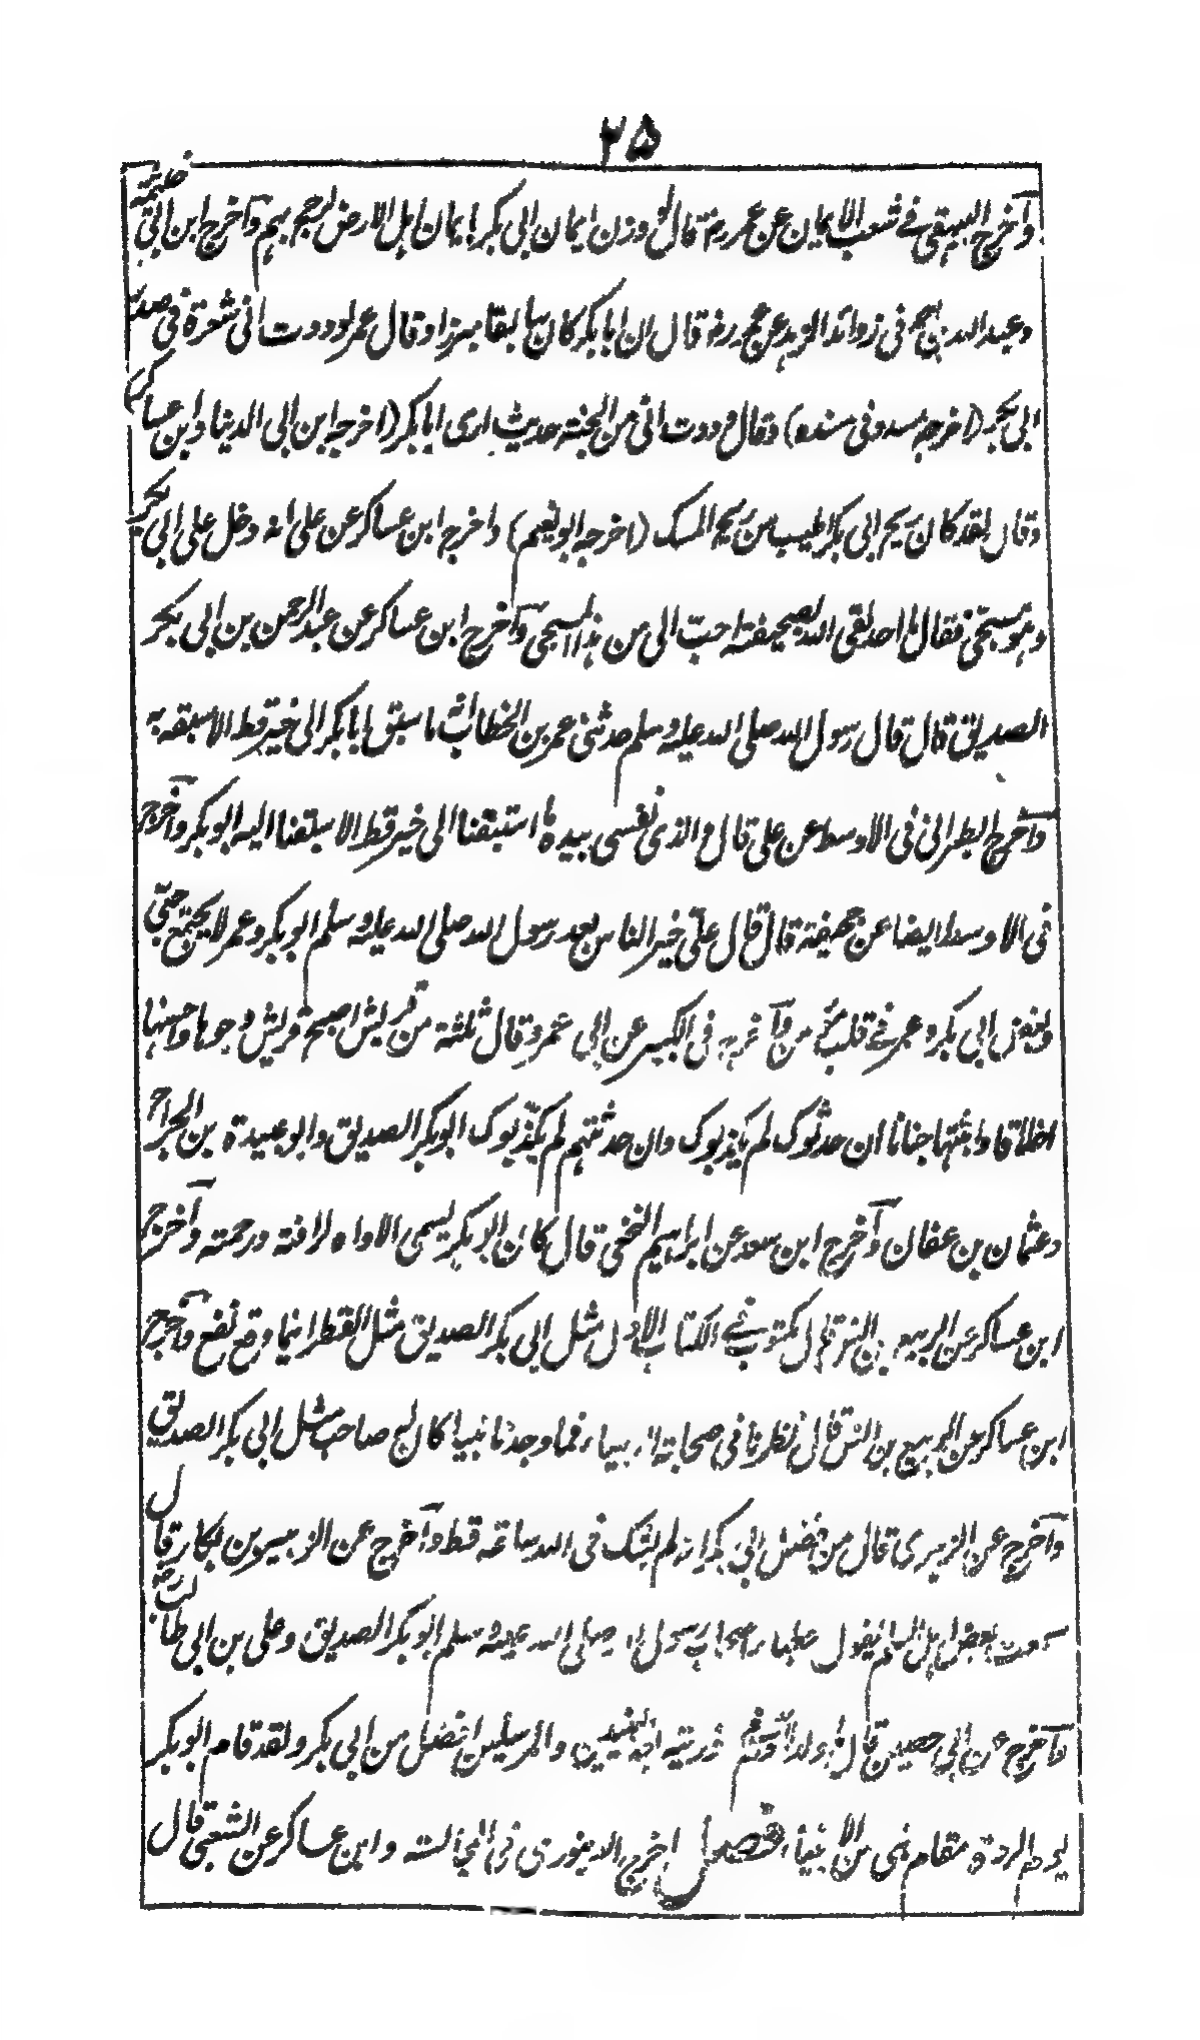 ۲۵
وأخرج البيهقى فے شعب الايمان عن عمر رض قال لو وزن ايمان ابى بكر بايمان اهل الارض لرجح بهم وأخرج ابن ابى خيثمة
وعبد الله بن احمد فى زوائد الزهد عن عمر رض قال ان ابا بكر كان سابقا مبرزا وقال عمر لوددت انى شعرة فى صدر
ابى بكر (اخرجه مسدد فى مسنده) وقال وددت انى من الجنة حيث ارى ابا بكر (اخرجه ابن ابى الدنيا وابن عساكر)
وقال لقد كان ريح ابى بكر اطيب من ريح المسك (اخرجه ابو نعيم) واخرج ابن عساكر عن على انه دخل على ابى بكر
وهو مسجى فقال ما احد لقى الله بصحيفته احب الى من هذا المسجى وأخرج ابن عساكر عن عبد الرحمن بن ابى بكر
الصديق قال قال رسول الله صلى الله عليه وسلم حدثنى عمر بن الخطاب انه ما سبق ابا بكر الى خير قط الا سبقه به
وأخرج الطبرانى فى الاوسط عن على قال والذى نفسى بيده ما استبقنا الى خير قط الا سبقنا اليه ابو بكر وأخرج
فى الاوسط ايضا عن جحيفة قال قال على خير الناس بعد رسول الله صلى الله عليه وسلم ابو بكر وعمر لا يجتمع حبى
وبغض ابى بكر وعمر فے قلب مؤمن وأخرج فى الكبير عن ابى عمر وقال ثلثة من قريش اصبح قريش وجوها واحسنها
اخلاقا واثبتها جنانا ان حدثوك لم يكذبوك وان حدثتهم لم يكذبوك ابو بكر الصديق وابو عبيدة بن الجراح
وعثمان بن عفان وأخرج ابن سعد عن ابراهيم النخعى قال كان ابو بكر يسمى الاواه لرافته ورحمته وأخرج
ابن عساكر عن الربيع بن انس قال مكتوب فے الكتاب الاول مثل ابى بكر الصديق مثل القطر اينما وقع نفع وأخرج
ابن عساكر عن الربيع بن انس قال نظرنا فى صحابة الانبياء فما وجدنا نبيا كان له صاحب مثل ابى بكر الصديق
وأخرج عن الزهرى قال من فضل ابى بكر انه لم يشك فى الله ساعة قط وأخرج عن الزبير بن بكار قال
سمعت بعض اهل العلم يقول خطباء اصحاب رسول الله صلى الله عليه وسلم ابو بكر الصديق وعلى بن ابى طالب
وأخرج عن ابى حصين قال ما ولد لآدم فى ذريته بعد النبيين والمرسلين افضل من ابى بكر ولقد قام ابو بكر
يوم الردة مقام نبى من الانبياء فصل اخرج الدينورى فى المجالسة وابن عساكر عن الشعبى قال